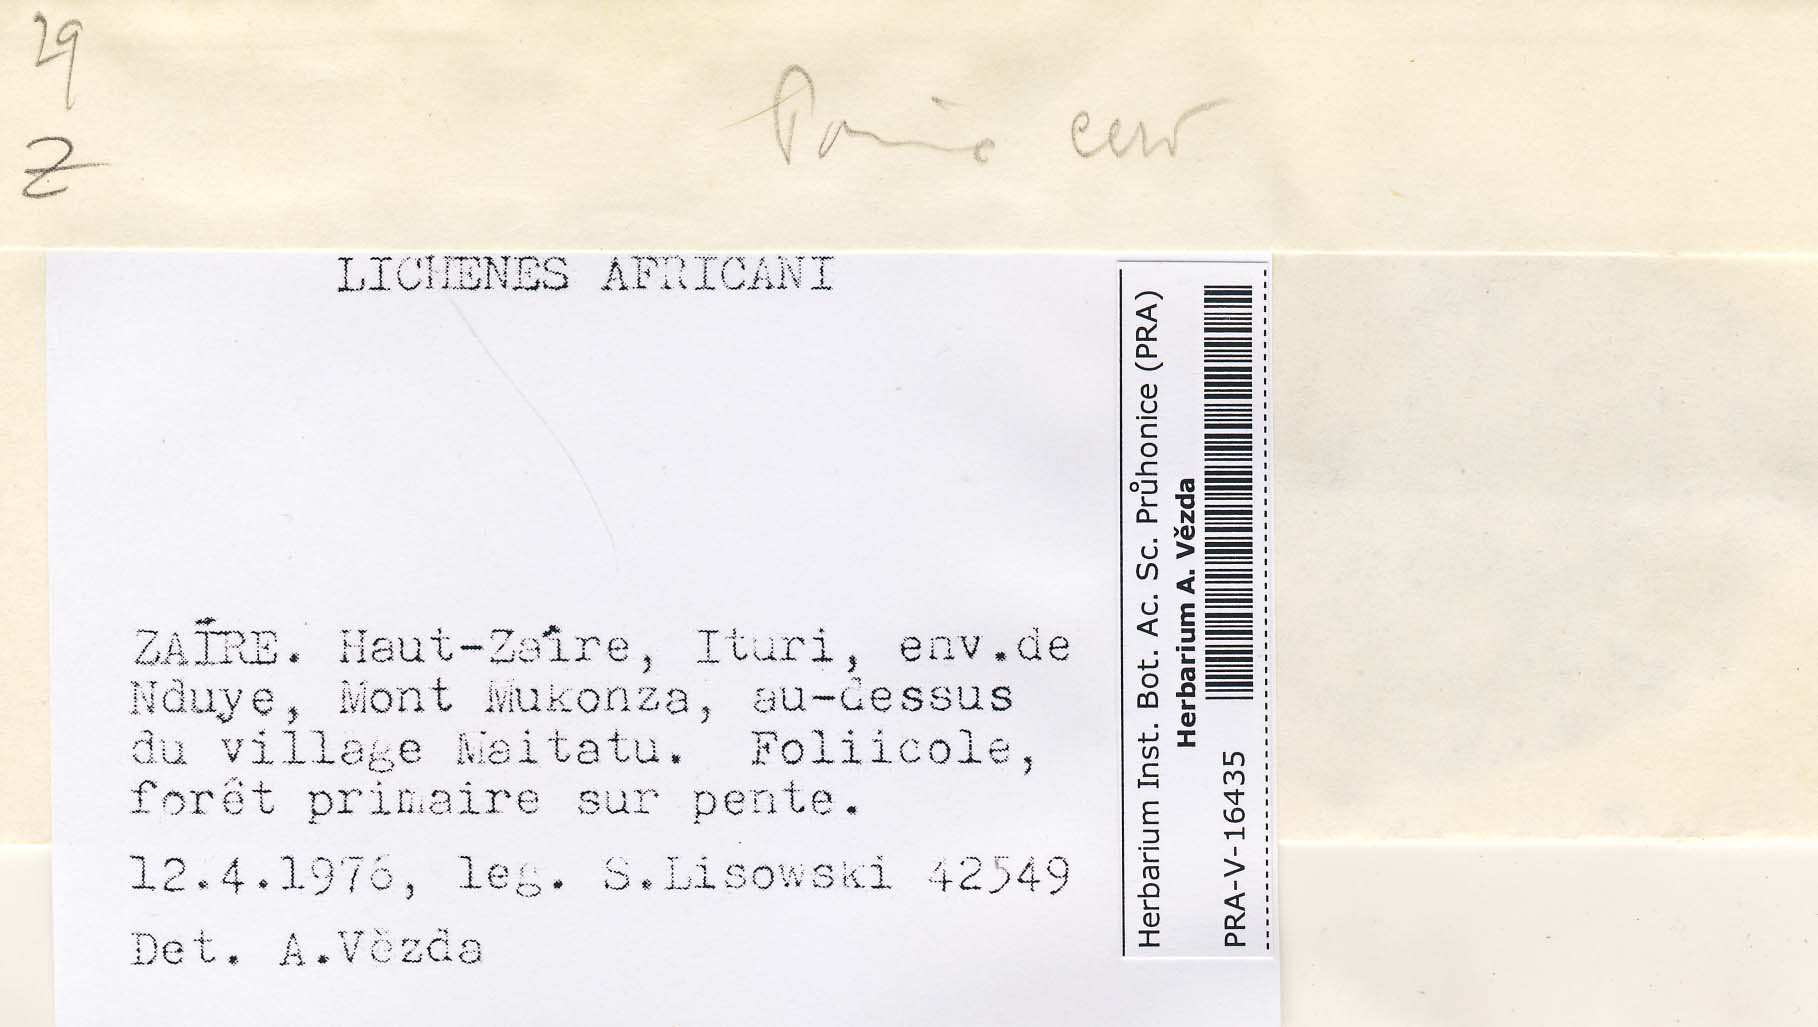 29
Z
LICHENES AFRICANI
ZAÏRE. Haut-Zaïre, Ituri, env.de
Nduye, Mont Mukonza, au-dessus
du village Maitatu. Foliicole,
forêt primaire sur pente.
12.4.1976, leg. S.Lisowski 42549
Det. A.Vězda
Herbarium Inst. Bot. Ac. Sc. Průhonice (PRA)
Herbarium A. Vězda
PRA-V-16435